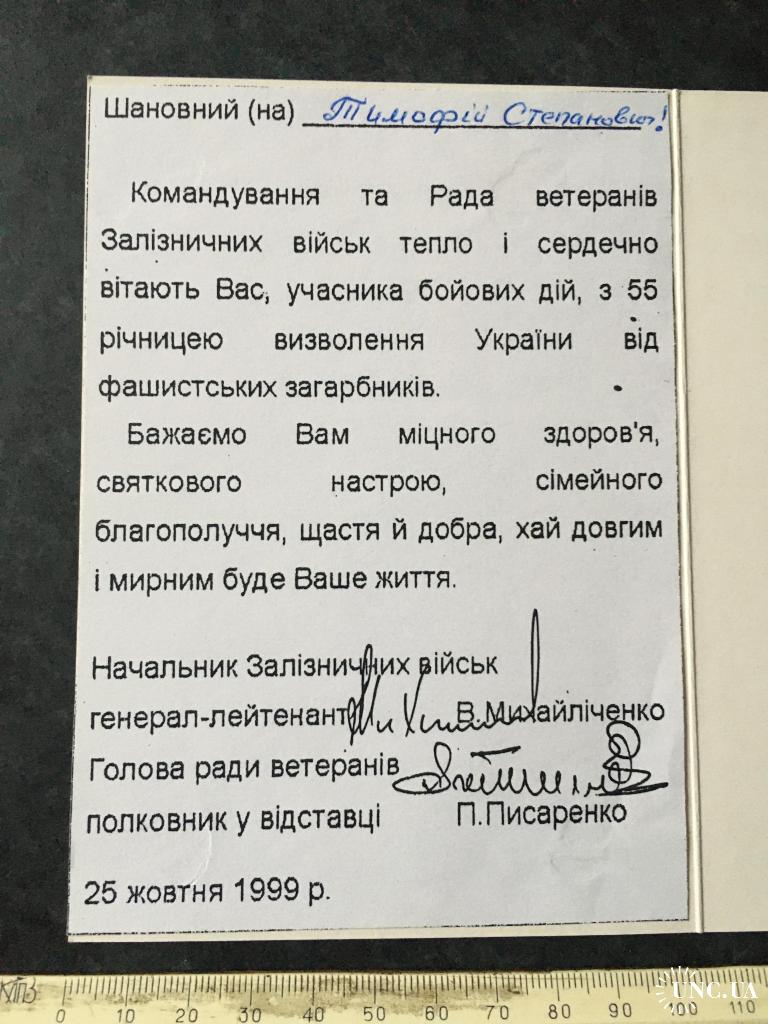 Шановний (на) Тимофій Степанович!
Командування та Рада ветеранів
Залізничних військ тепло і сердечно
вітають Вас, учасника бойових дій, з 55
річницею визволення України від
фашистських загарбників.
Бажаємо Вам міцного здоров'я,
святкового настрою, сімейного
благополуччя, щастя й добра, хай довгим
і мирним буде Ваше життя.
Начальник Залізничних військ
генерал-лейтенант В.Михайліченко
Голова ради ветеранів
полковник у відставці П.Писаренко
25 жовтня 1999 р.
0 10 20 30 40 50 60 70 80 90 100 110
UNC.UA